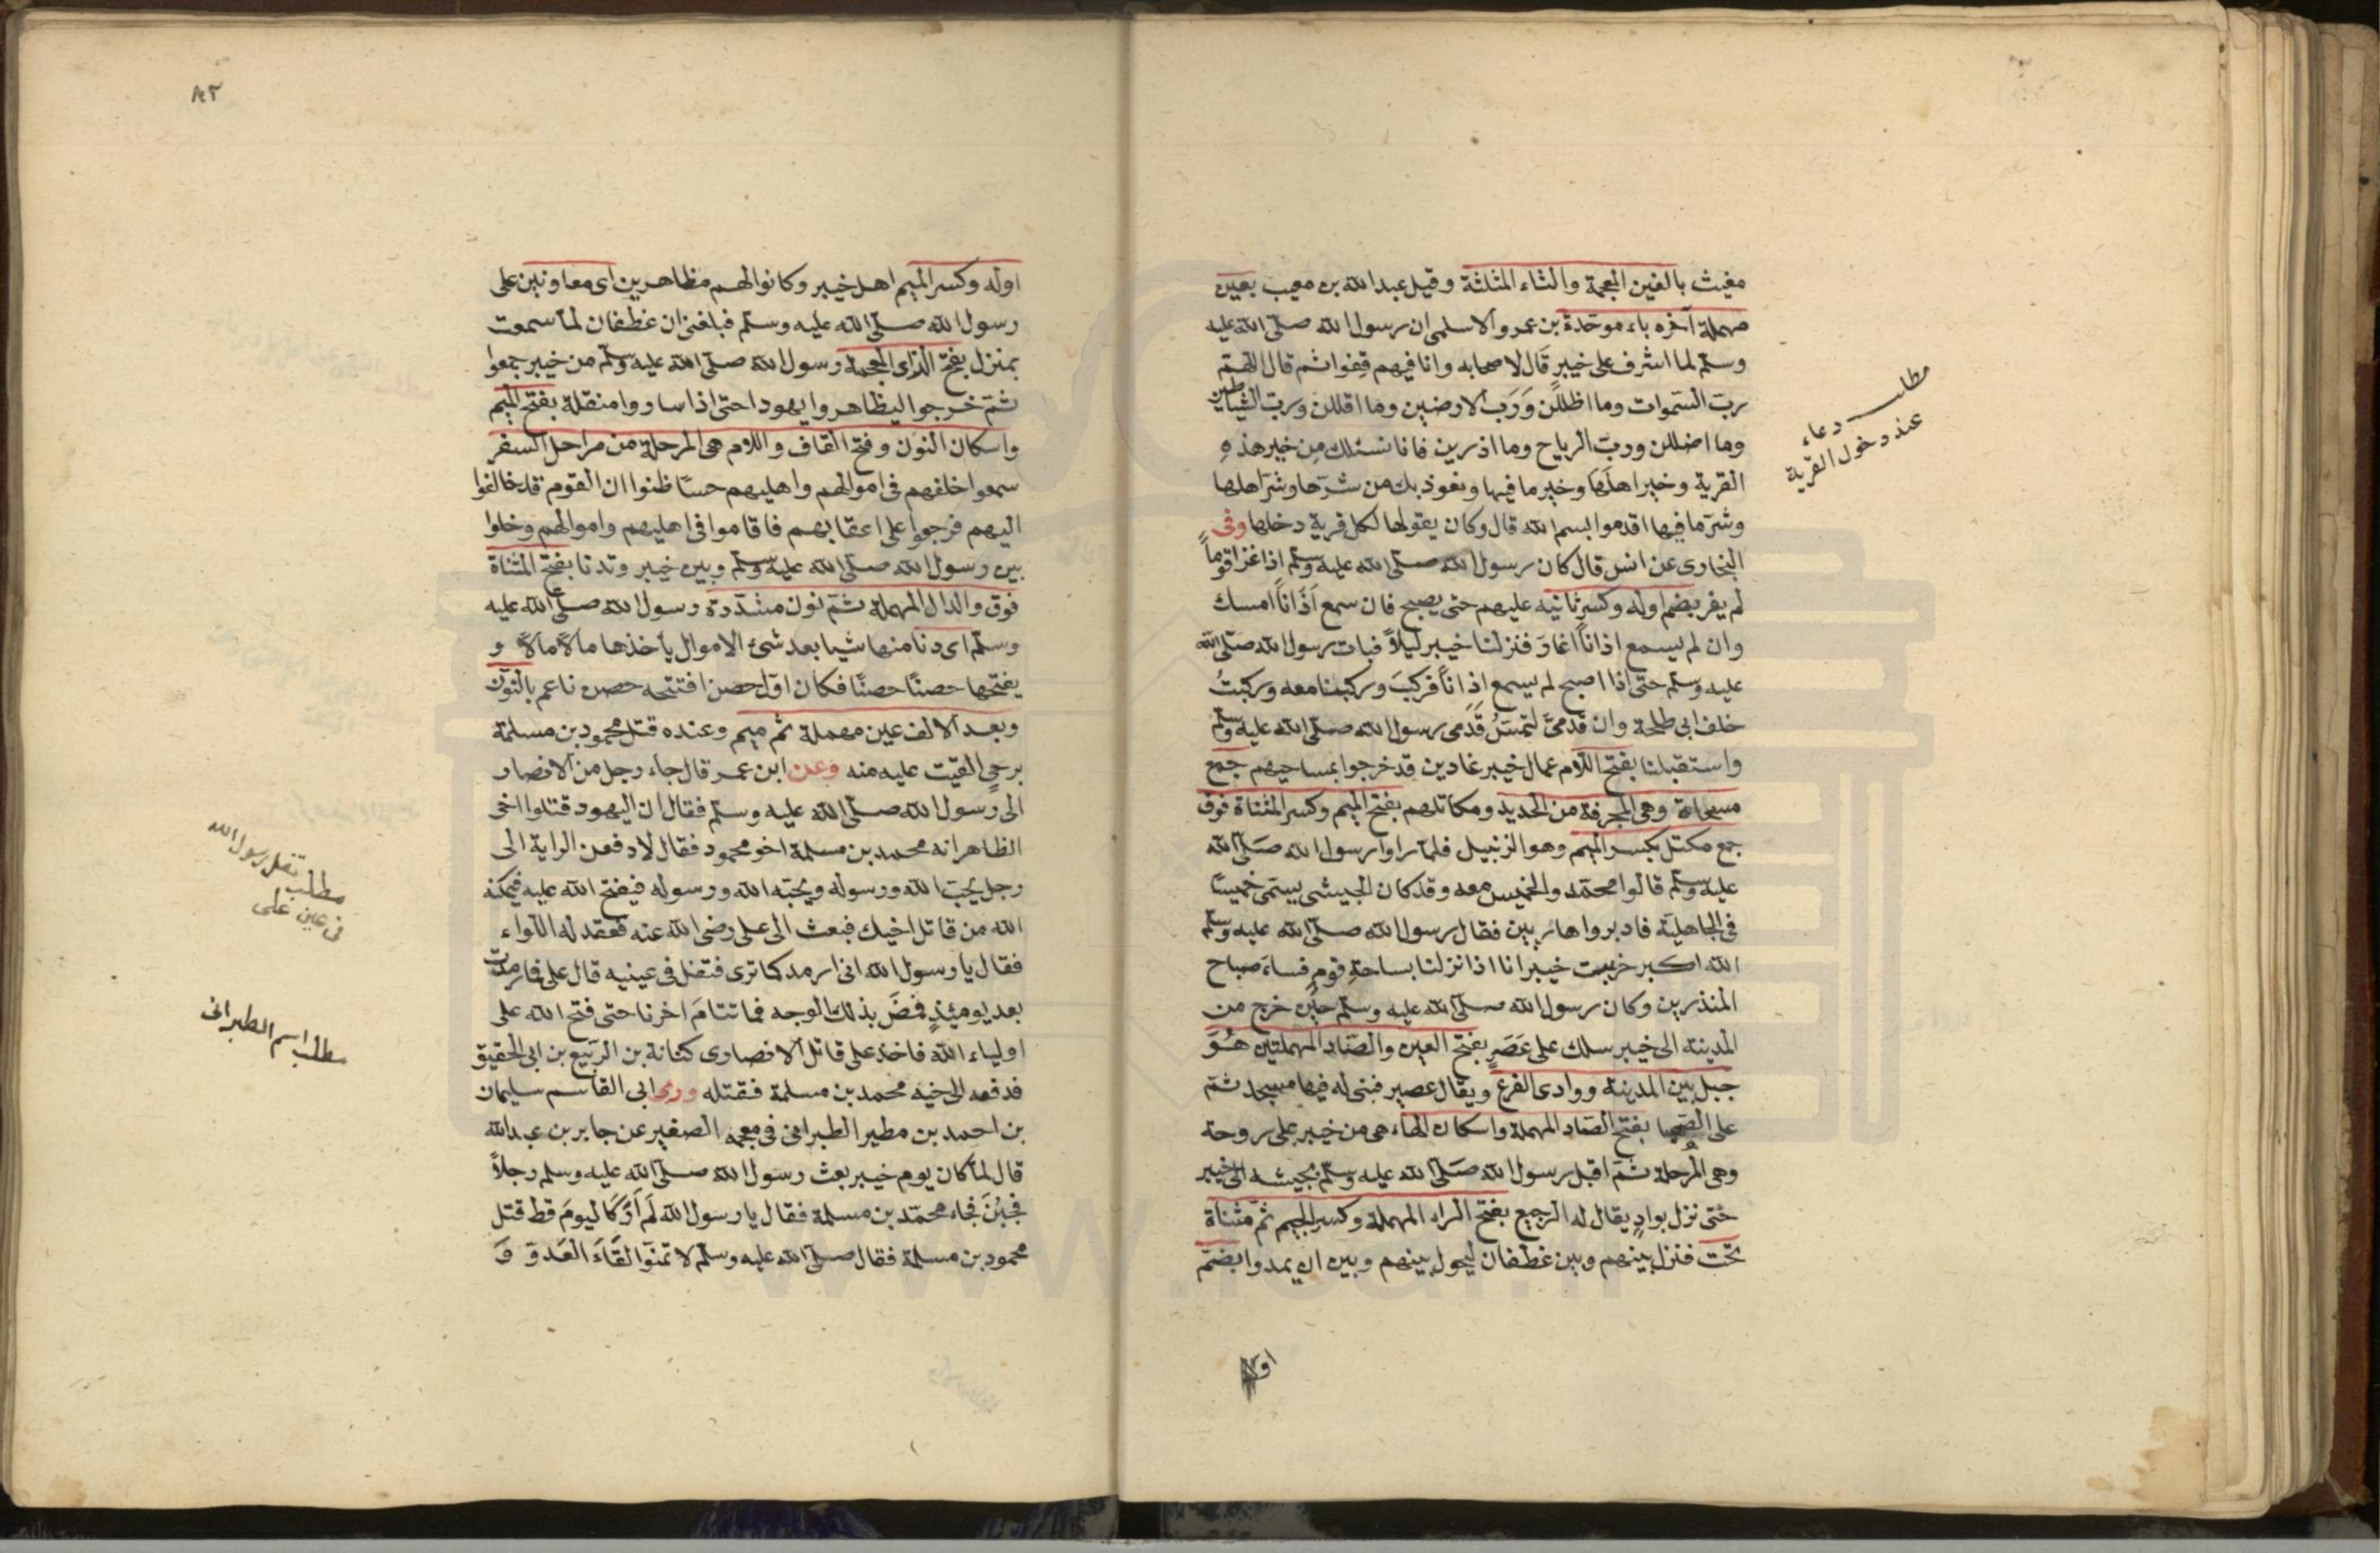 مغيث بالغين المعجمة والثاء المثلثة وقيل عبد الله بن معيب بعين
مهملة آخره باء موحدة بن عمرو الاسلمى ان رسول الله صلى الله عليه
وسلم لما اشرف على خيبر قال لاصحابه وانا فيهم قفوا ثم قال اللهم
رب السموات وما اظللن ورب الارضين وما اقللن ورب الشياطين
وما اضللن ورب الرياح وما اذرين فانا نسئلك من خير هذه
القرية وخير اهلها وخير ما فيها ونعوذ بك من شرها وشر اهلها
وشر ما فيها اقدموا بسم الله قال وكان يقولها لكل قرية دخلها وفى
البخارى عن انس قال كان رسول الله صلى الله عليه وسلم اذا غزا قوماً
لم يغر بضم اوله وكسر ثانيه عليهم حتى يصبح فان سمع اذاناً امسك
وان لم يسمع اذاناً اغار فنزلنا خيبر ليلاً فبات رسول الله صلى الله
عليه وسلم حتى اذا اصبح لم يسمع اذاناً فركب وركبنا معه وركبت
خلف ابى طلحة وان قدمىّ لتمس قدمى رسول الله صلى الله عليه وسلم
واستقبلنا بفتح اللام عمال خيبر غادين قد خرجوا بمساحيهم جمع
مسحاة وهى المجرفة من الحديد ومكاتلهم بفتح الميم وكسر المثناة فوق
جمع مكتل بكسر الميم وهو الزنبيل فلما راوا رسول الله صلى الله
عليه وسلم قالوا محمد والخميس معه وقد كان الجيش يسمى خميسًا
فى الجاهلية فادبروا هاربين فقال رسول الله صلى الله عليه وسلم
الله اكبر خربت خيبر انا اذا نزلنا بساحة قوم فساء صباح
المنذرين وكان رسول الله صلى الله عليه وسلم حين خرج من
المدينة الى خيبر سلك على عَصَرٍ بفتح العين والصاد المهملتين هُوَ
جبل بين المدينة ووادى الفرع ويقال عصير فبنى له فيها مسجد ثم
على الصهبا بفتح الصاد المهملة واسكان الهاء هى من خيبر على روحة
وهى المرحلة ثم اقبل رسول الله صلى الله عليه وسلم بجيشه الى خيبر
حتى نزل بوادٍ يقال له الرجيع بفتح الراء المهملة وكسر الجيم ثم مثناة
تحت فنزل بينهم وبين غطفان ليحول بينهم وبين ان يمدوا بضم
مطلب دعاء
عند دخول القرية
٨٢
اوله وكسر الميم اهل خيبر وكانوا لهم مظاهرين اى معاونين على
رسول الله صلى الله عليه وسلم فبلغنى ان غطفان لما سمعت
بمنزل بفتح الزاى المعجمة رسول الله صلى الله عليه وسلم من خيبر جمعوا
ثم خرجوا ليظاهروا يهود حتى اذا ساروا منقلة بفتح الميم
واسكان النون وفتح القاف واللام هى المرحلة من مراحل السفر
سمعوا خلفهم فى اموالهم واهليهم حسًا ظنوا ان القوم قد خالفوا
اليهم فرجعوا على اعقابهم فاقاموا فى اهليهم واموالهم وخلوا
بين رسول الله صلى الله عليه وسلم وبين خيبر وتدنا بفتح المثناة
فوق والدال المهملة ثم نون مشددة رسول الله صلى الله عليه
وسلم اى دنا منها شيا بعد شئ الاموال يأخذها مالاً مالاً و
يفتحها حصنًا حصنًا فكان اول حصن افتتحه حصن ناعم بالنون
وبعد الالف عين مهملة ثم ميم وعنده قتل محمود بن مسلمة
برحى القيت عليه منه وعن ابن عمر قال جاء رجل من الانصار
الى رسول الله صلى الله عليه وسلم فقال ان اليهود قتلوا اخى
الظاهر انه محمد بن مسلمة اخو محمود فقال لادفعن الراية الى
رجل يحب الله ورسوله ويحبه الله ورسوله فيفتح الله عليه فيمكنه
الله من قاتل اخيك فبعث الى على رضى الله عنه فعقد له اللواء
فقال يا رسول الله انى ارمد كما ترى فتفل فى عينيه قال على فما رمدت
بعد يومئذٍ فمضَ بذلك الوجه فما تتامَ اخرنا حتى فتح الله على
اولياء الله فاخذ على قاتل الانصارى كنانة بن الربيع بن ابى الحقيق
فدفعه الى اخيه محمد بن مسلمة فقتله وروى ابى القاسم سليمان
بن احمد بن مطير الطبرانى فى معجمه الصغير عن جابر بن عبد الله
قال لما كان يوم خيبر بعث رسول الله صلى الله عليه وسلم رجلاً
فجبُنَ فجاء محمد بن مسلمة فقال يا رسول الله لَم اَرَ كَاليومَ قط قتل
محمود بن مسلمة فقال صلى الله عليه وسلم لا تمنوا لقَاءَ العَدوّ فَ
مطلب تفل رسول الله
فى عين على
مطلب اسم الطبرانى